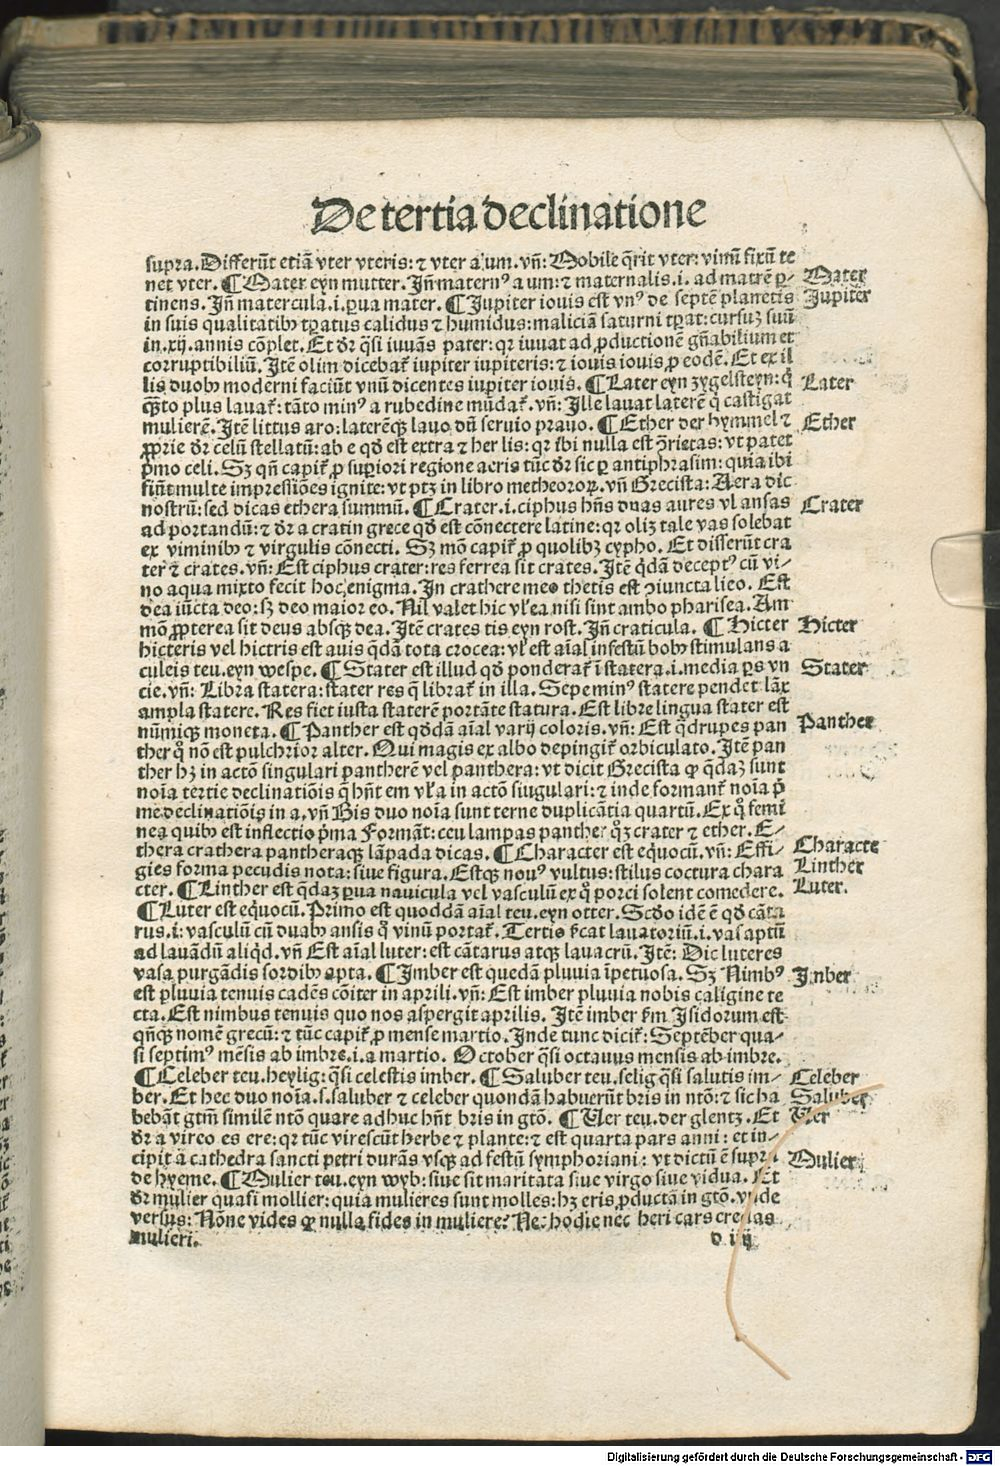 De tertia declinatione
supra. Differūt etiā vter vteris: ⁊ vter a um. vñ: Nobile q̄rit vter: vinū fixū te
net vter. ¶ Mater eyn mutter. Jñ matern⁹ a um: ⁊ maternalis .i. ad matrē ꝑ-
tinens. Jñ matercula .i. ꝑua mater. ¶ Jupiter iouis est vn⁹ de septē planetis
in suis qualitatibꝰ tꝑatus calidus ⁊ humidus: maliciā saturni tꝑat: cursuʒ suū
in .xij. annis cōplet. Et dr̄ q̄si iuuās pater: qr iuuat ad ꝓductionē gn̄abilium et
corruptibiliū. Jtē olim dicebat᷑ iupiter iupiteris: ⁊ iouis iouis ꝓ eodē. Et ex il
lis duobꝰ moderni faciūt vnū dicentes iupiter iouis. ¶ Later eyn zygelsteyn: q̇
q̄ꝫto plus lauat᷑: tāto min⁹ a rubedine mūdat᷑. vñ: Jlle lauat laterē q̇ castigat
mulierē. Jtē littus aro: laterēqꝫ lauo dū seruio prauo. ¶ Ether der hymmel ⁊
ꝓprie dr̄ celū stellatū: ab e qd̄ est extra ⁊ her lis: qr ibi nulla est ꝯrietas: vt patet
p̄mo celi. Sꝫ qn̄ capit᷑ ꝓ suꝑiori regione aeris tūc dr̄ sic ꝑ antiphrasim: quia ibi
fiūt multe impressiōes ignite: vt ptꝫ in libro metheoroꝝ. vñ Grecista: Aera dic
nostrū: sed dicas ethera summū. ¶ Crater .i. ciphus hn̄s duas aures vl ansas
ad portandū: ⁊ dr̄ a cratin grece qd̄ est cōnectere latine: qr oliꝫ tale vas solebat
ex viminibꝰ ⁊ virgulis cōnecti. Sꝫ mō capit᷑ ꝓ quolibꝫ cypho. Et differūt cra
ter ⁊ crates. vñ: Est ciphus crater: res ferrea sit crates. Jtē q̄dā decept⁹ cū vi-
no aqua mixto fecit hoc enigma. Jn crathere meo thetis est ꝯiuncta lieo. Est
dea iūcta deo: sꝫ deo maior eo. Nil valet hic vl̓ ea nisi sint ambo pharisea. Am
mō ꝓpterea sit deus absqꝫ dea. Jtē crates tis eyn rost. Jñ craticula. ¶ Hicter
hicteris vel hictris est auis q̄dā tota crocea: vl̓ est aīal infestū bobꝰ stimulans a
culeis teu. eyn wespe. ¶ Stater est illud qd̄ ponderat᷑ ī statera .i. media ꝑs vn
cie. vñ: Libra statera: stater res q̄ librat᷑ in illa. Sepe min⁹ statere pendet lāx
ampla statere. Res fiet iusta staterē portāte statura. Est libre lingua stater est
nūmiqꝫ moneta. ¶ Panther est qd̄dā aīal varij coloris. vñ: Est q̄drupes pan
ther q̊ nō est pulchrior alter. Qui magis ex albo depingit᷑ orbiculato. Jtē pan
ther hꝫ in actō singulari pantherē vel panthera: vt dicit Grecista ꝙ q̄daꝫ sunt
noīa tertie declinatiōis q̄ hn̄t em vl̓ a in actō singulari: ⁊ inde formant᷑ noīa p̄
me declinatiōis in a. vñ Bis duo noīa sunt terne duplicātia quartū. Ex q̊ femi
nea quibꝰ est inflectio p̄ma Formāt: ceu lampas panther q̊ꝫ crater ⁊ ether. E-
thera crathera pantheraqꝫ lāpada dicas. ¶ Character est equocū. vñ: Effi-
gies forma pecudis nota: siue figura. Estqꝫ nou⁹ vultus: stilus coctura chara
cter. ¶ Linther est q̄daꝫ ꝑua nauicula vel vasculū ex q̊ porci solent comedere.
¶ Luter est equocū. Primo est quoddā aīal teu. eyn otter. Scd̄o idē ē qd̄ cāta
rus .i: vasculū cū duabꝰ ansis q̊ vinū portat᷑. Tertio s̄cat lauatoriū .i. vas aptū
ad lauādū aliqd̄. vñ Est aīal luter: est cātarus atqꝫ lauacrū. Jtē: Dic luteres
vasa purgādis sordibꝰ apta. ¶ Jmber est quedā pluuia īpetuosa. Sꝫ Nimb⁹
est pluuia tenuis cadēs cōiter in aprili. vñ: Est imber pluuia nobis caligine te
cta. Est nimbus tenuis quo nos aspergit aprilis. Jtē imber s̄m Jsidorum est
qn̄qꝫ nomē grecū: ⁊ tūc capit᷑ ꝓ mense martio. Jnde tunc dicit᷑: Septēber qua-
si septim⁹ mēsis ab imbre .i. a martio. October q̄si octauus mensis ab imbre.
¶ Celeber teu. heylig: q̄si celestis imber. ¶ Saluber teu. selig q̄si salutis im-
ber. Et hec duo noīa .s. saluber ⁊ celeber quondā habuerūt bris in ntō: ⁊ sic ha
bebāt gtm̄ similē ntō quare adhuc hn̄t bris in gtō. ¶ Ver teu. der glentz. Et
dr̄ a vireo es ere: qr tūc virescūt herbe ⁊ plante: ⁊ est quarta pars anni: et in-
cipit a cathedra sancti petri durās vsqꝫ ad festū symphoriani: vt dictū ē supra
de hyeme. ¶ Mulier teu. eyn wyb: siue sit maritata siue virgo siue vidua. Et
dr̄ mulier quasi mollier: quia mulieres sunt molles: hꝫ eris ꝓductā in gtō. vnde
versus: Nōne vides ꝙ nulla fides in muliere? Nec hodie nec heri cars credas
mulieri.
d iiij
Mater
Jupiter
Later
Ether
Crater
Hicter
Stater
Panther
Characte
Linther
Luter.
Jmber
Celeber
Saluber
Ver
Mulier
Digitalisierung gefördert durch die Deutsche Forschungsgemeinschaft - DFG